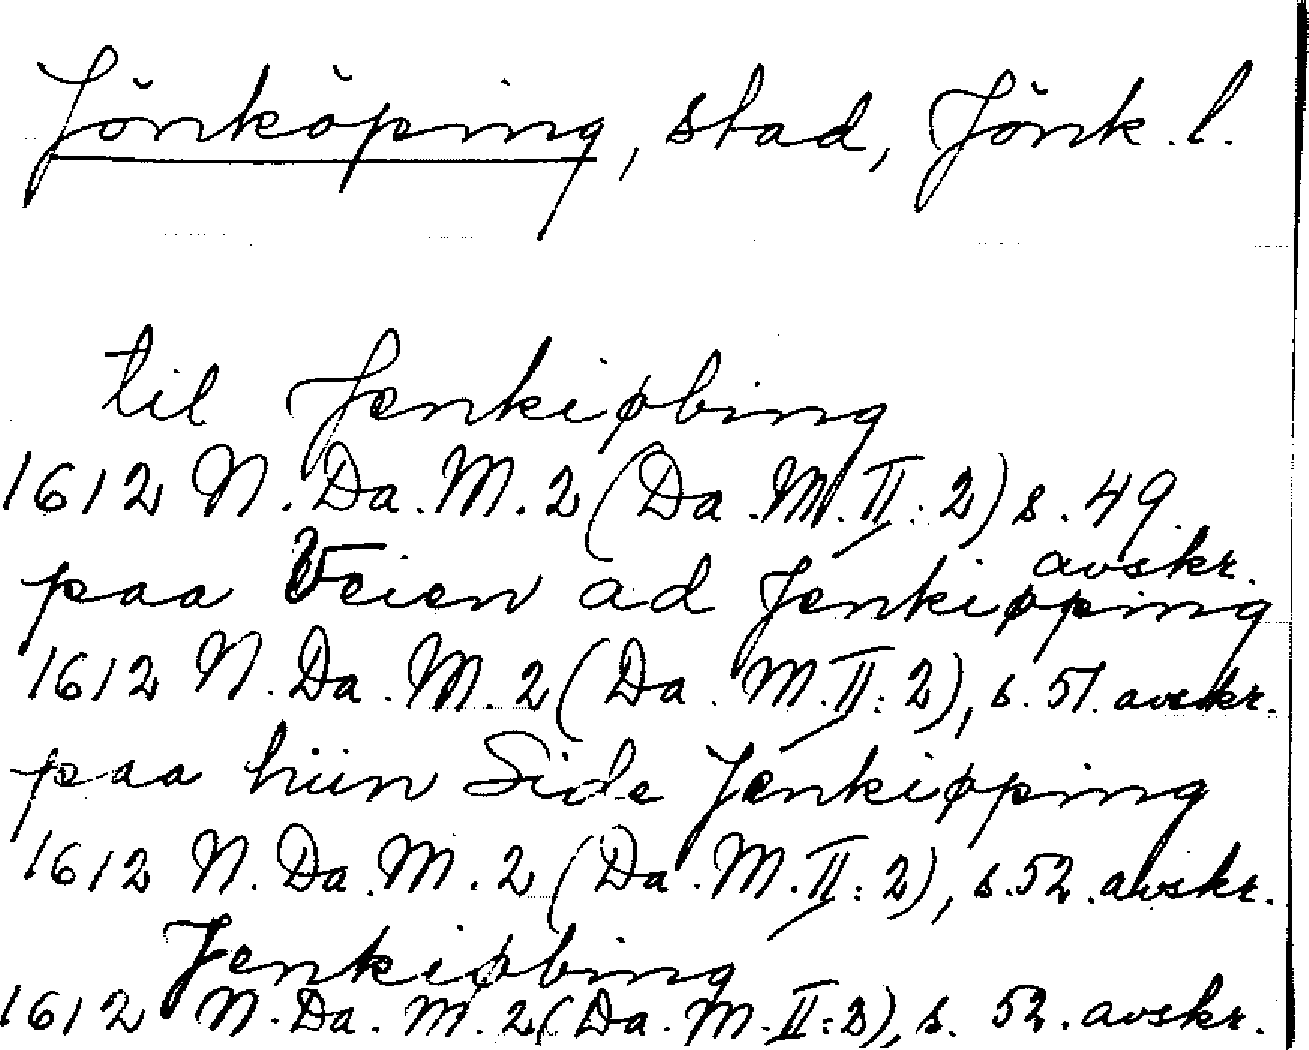 Jönköping, stad, Jönk. l.
til Jenkiøbing
1612 N. Da. M. 2 (Da. M. II: 2) s. 49.
avskr.
paa Veien ad Jenkiøping
1612 N. Da. M. 2 (Da. M. II: 2), s. 51. avskr.
paa hiin Side Jenkiøping
1612 N. Da. M. 2 (Da. M. II: 2), s. 52. avskr.
Jenkiøbing
1612 N. Da. M. 2 (Da. M. II: 2), s. 52. avskr.